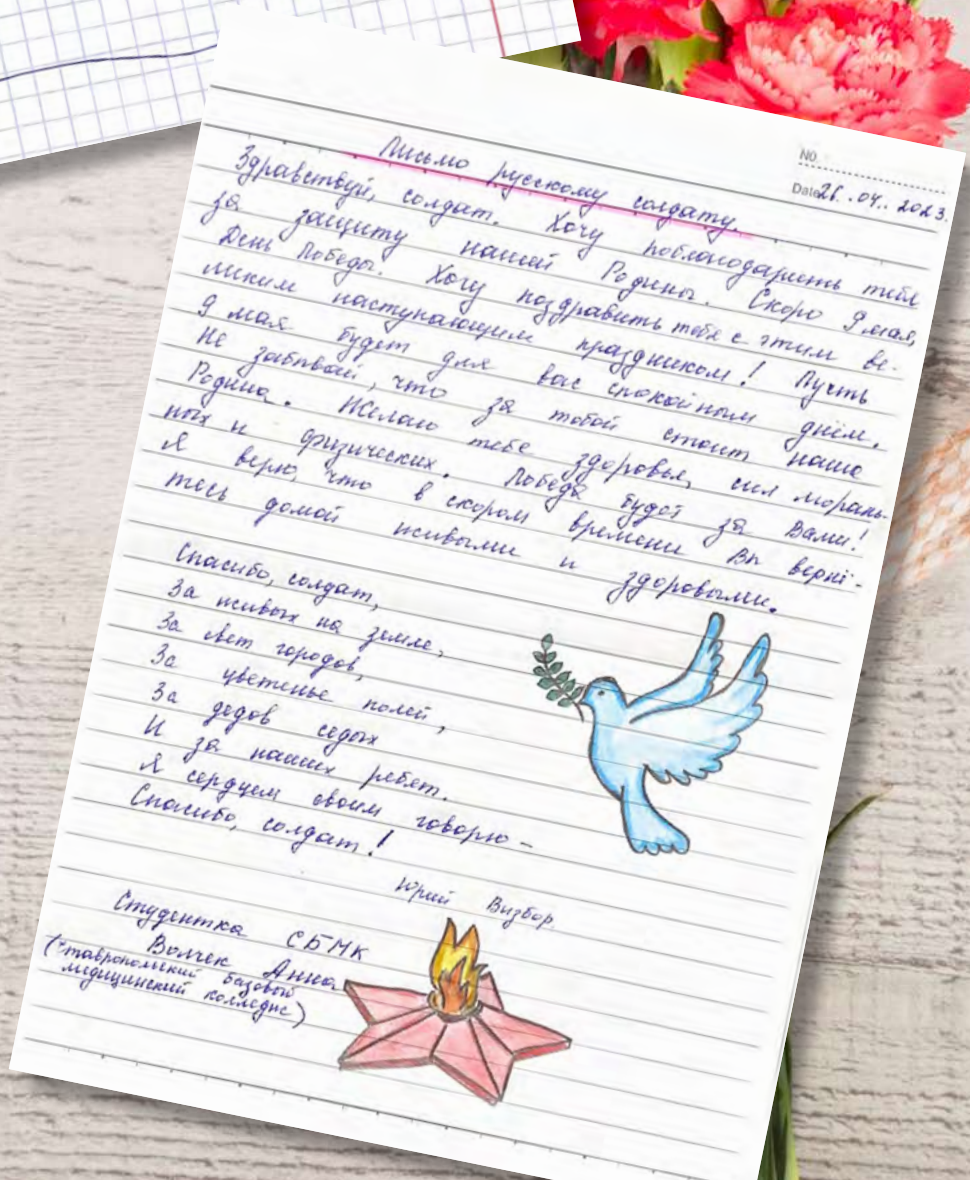 NO.
Date 26.04.2023.
Письмо русскому солдату.
Здравствуй, солдат. Хочу поблагодарить тебя
за защиту нашей Родины. Скоро 9 мая,
День Победы. Хочу поздравить тебя с этим ве-
ликим наступающим праздником! Пусть
9 мая будет для вас спокойным днём.
Не забывай, что за тобой стоит наша
Родина. Желаю тебе здоровья, сил мораль-
ных и физических. Победа будет за Вами!
Я верю, что в скором времени Вы вернё-
тесь домой живыми и здоровыми.
Спасибо, солдат,
За живых на земле,
За свет городов,
За цветенье полей,
За дедов седых
И за наших ребят.
Я сердцем своим говорю –
Спасибо, солдат!
Юрий Визбор
Студентка СБМК
Волчек Анна
(Ставропольский базовый
медицинский колледж)